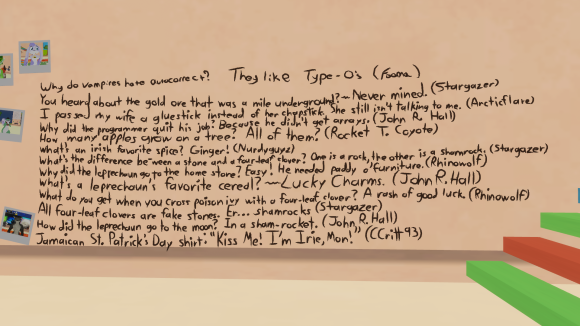 Why do vampires hate autocorrect? They like Type-O's (Fooma)
You heard about the gold ore that was a mile underground?~ Never mined. (Stargazer)
I passed my wife a gluestick instead of her chapstick. She still isn't talking to me. (Arcticflare)
Why did the programmer quit his job? Because he didn't get arrays. (John R. Hall)
How many apples grow on a tree? All of them? (Rocket T. Coyote)
What's an Irish favorite spice? Ginger! (Nurdyguyz)
What's the difference be-ween a stone and a four-leaf clover? One is a rock, the other is a shamrock. (Stargazer)
Why did the leprechaun go to the home store? Easy! He needed paddy o'furniture. (Rhinowolf)
What's, a leprechaun's favorite cereal? ~Lucky Charms. (John R. Hall)
What do you get when you cross poison ivy with a four-leaf clover? A rash of good luck. (Rhinowolf)
All four-leaf clovers are fake stones. Er... shamrocks (Stargazer)
How did the leprechaun go to the moon? In a sham-rocket. (John R. Hall)
Jamaican St. Patrick's Day shirt: "Kiss Me! I'm Irie, Mon!" (CCritt93)